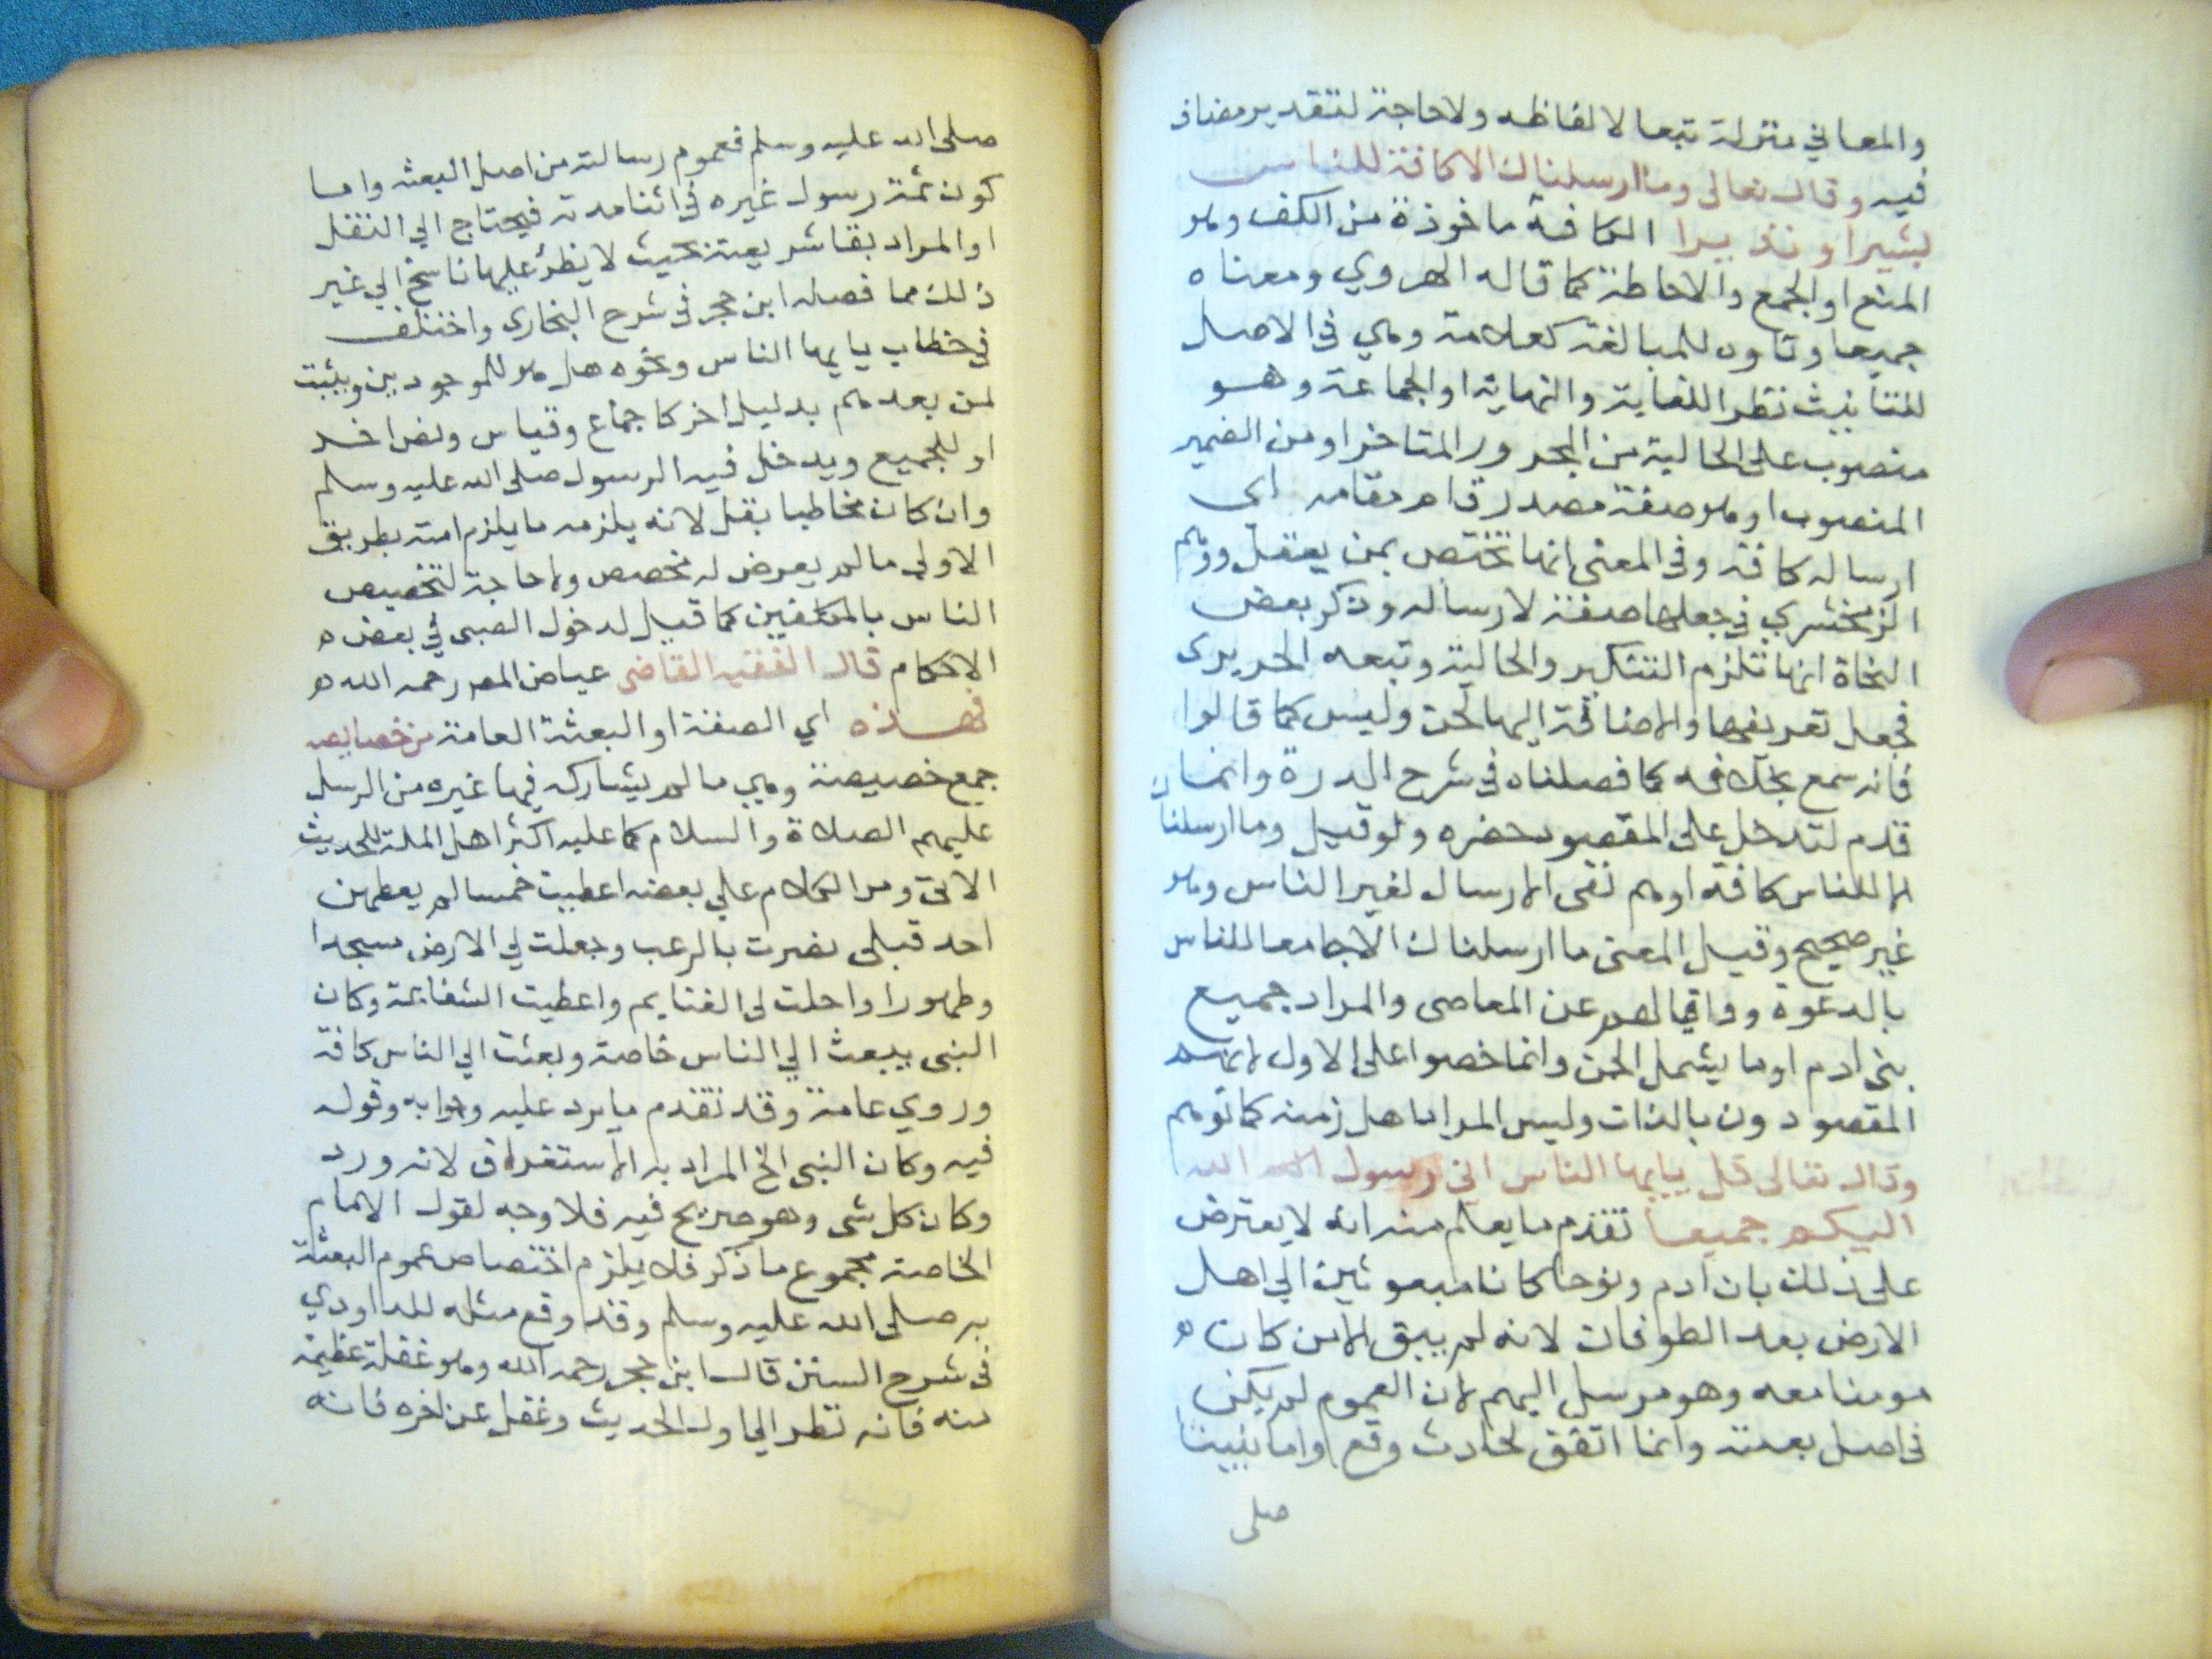 والمعاني منزلة تبعا لالفاظه ولاحاجة لتقدير مضاف
فيه وقال تعالى وما ارسلناك الا كافة للناس
بشيرا ونذيرا الكافة ماخوذة من الكف وهو
المنع او الجمع والاحاطة كما قاله الهروي ومعناه
جميعا وتاوه للمبالغة كعلامة وهي في الاصل
للتانيث نظرا للغاية والنهاية او الجماعة وهو
منصوب على الحالية من المجرور المتاخر او من الضمير
المنصوب او هو صفة مصدر قام مقامه اي
ارساله كافة وفي المعنى انها تختص بمن يعقل ووهم
الزمخشري في جعلها صفة لارساله وذكر بعض
النحاة انها تلزم التنكير والحالية وتبعه الحريري
فجعل تعريفها والاضافة اليها لحن وليس كما قالوا
فانه سمع بخلافه كما فصلناه في شرح الدرة وانما
قدم لتدخل على المقصود حصره ولو قيل وما ارسلنا
الا للناس كافة اوهم نفي الارسال لغير الناس وهو
غير صحيح وقيل المعنى ما ارسلناك الا جامعا للناس
بالدعوة وواقيا لهم عن المعاصي والمراد جميع
بني ادم او ما يشمل الجن وانما خصوا على الاول لانهم
المقصودون بالذات وليس المراد اهل زمنه كما توهم
وقال تعالى قل يايها الناس اني رسول الله
اليكم جميعا تقدم ما يعلم منه انه لا يعترض
على ذلك بان ادم ونوحا كانا مبعوثين الي اهل
الارض بعد الطوفان لانه لم يبق الا من كان ه
مومنا معه وهو مرسل اليهم لان العموم لم يكن
في اصل بعثته وانما اتفق لحادث وقع واما نبينا
صلى
صلى الله عليه وسلم فعموم رسالته من اصل البعثة واما
كون ثمة رسول غيره في اثنا مدته فيحتاج الي النقل
او المراد بقا شريعته بحيث لا يطرؤ عليها ناسخ الي غير
ذلك مما فصله ابن حجر في شرح البخاري واختلف
في خطاب يايها الناس ونحوه هل هو للموجودين ويثبت
لمن بعدهم بدليل اخر كاجماع وقياس ونص اخر
او للجميع ويدخل فيه الرسول صلى الله عليه وسلم
وان كان مخاطبا بقل لانه يلزمه ما يلزم امته بطريق
الاولي ما لم يعرض له مخصص ولا حاجة لتخصيص
الناس بالمكلفين كما قيل لدخول الصبي في بعض ه
الاحكام قال الفقيه القاضي عياض المص رحمه الله ه
فهذه اي الصفة او البعثة العامة من خصايصه
جمع خصيصة وهي ما لم يشاركه فيها غيره من الرسل
عليهم الصلاة والسلام كما عليه اكثر اهل الملة للحديث
الاتي ومر الكلام علي بعضه اعطيت خمسا لم يعطهن
احد قبلي نصرت بالرعب وجعلت لي الارض مسجدا
وطهورا واحلت لي الغنايم واعطيت الشفاعة وكان
النبي يبعث الي الناس خاصة وبعثت الي الناس كافة
وروي عامة وقد تقدم ما يرد عليه وجوابه وقوله
فيه وكان النبي الخ المراد به الاستغراق لانه ورد
وكان كل نبي وهو صريح فيه فلا وجه لقول الامام
الخاصة مجموع ما ذكر فلا يلزم اختصاص عموم البعثة
به صلى الله عليه وسلم وقد وقع مثله للداودي
في شرح السنن قال ابن حجر رحمه الله وهو غفلة عظيمة
منه فانه نظر الي اول الحديث وغفل عن اخره فانه